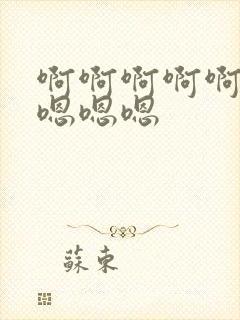 啊啊啊啊啊
嗯嗯嗯
蘇束